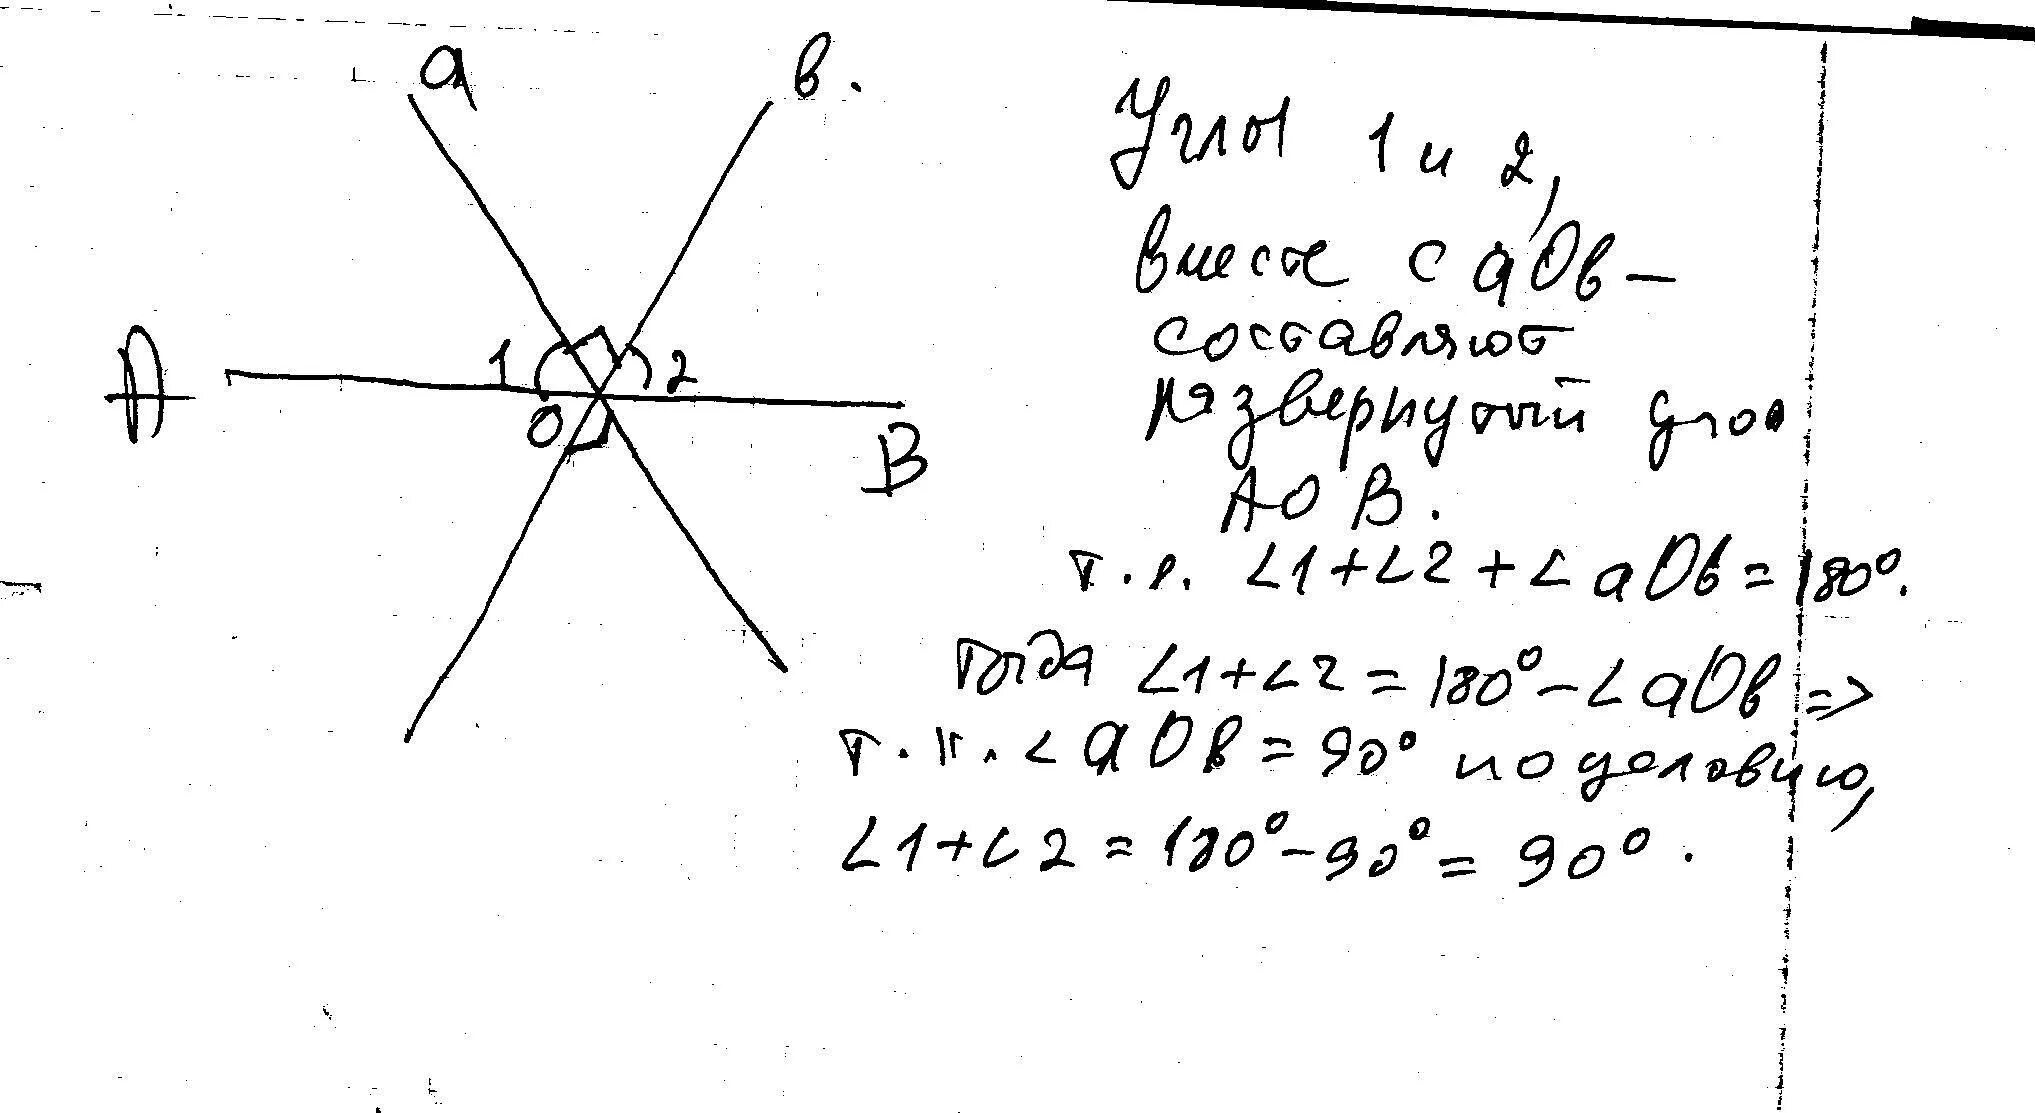 а
в.
1
2
А
О
В
Углы 1 и 2,
вместе с аОв —
составляют
развернутый угол
АОВ.
т.е. ∠1+∠2+∠аОв=180°.
тогда ∠1+∠2=180°-∠аОв=>
т.к. ∠аОв=90° по условию,
∠1+∠2=180°-90°=90°.